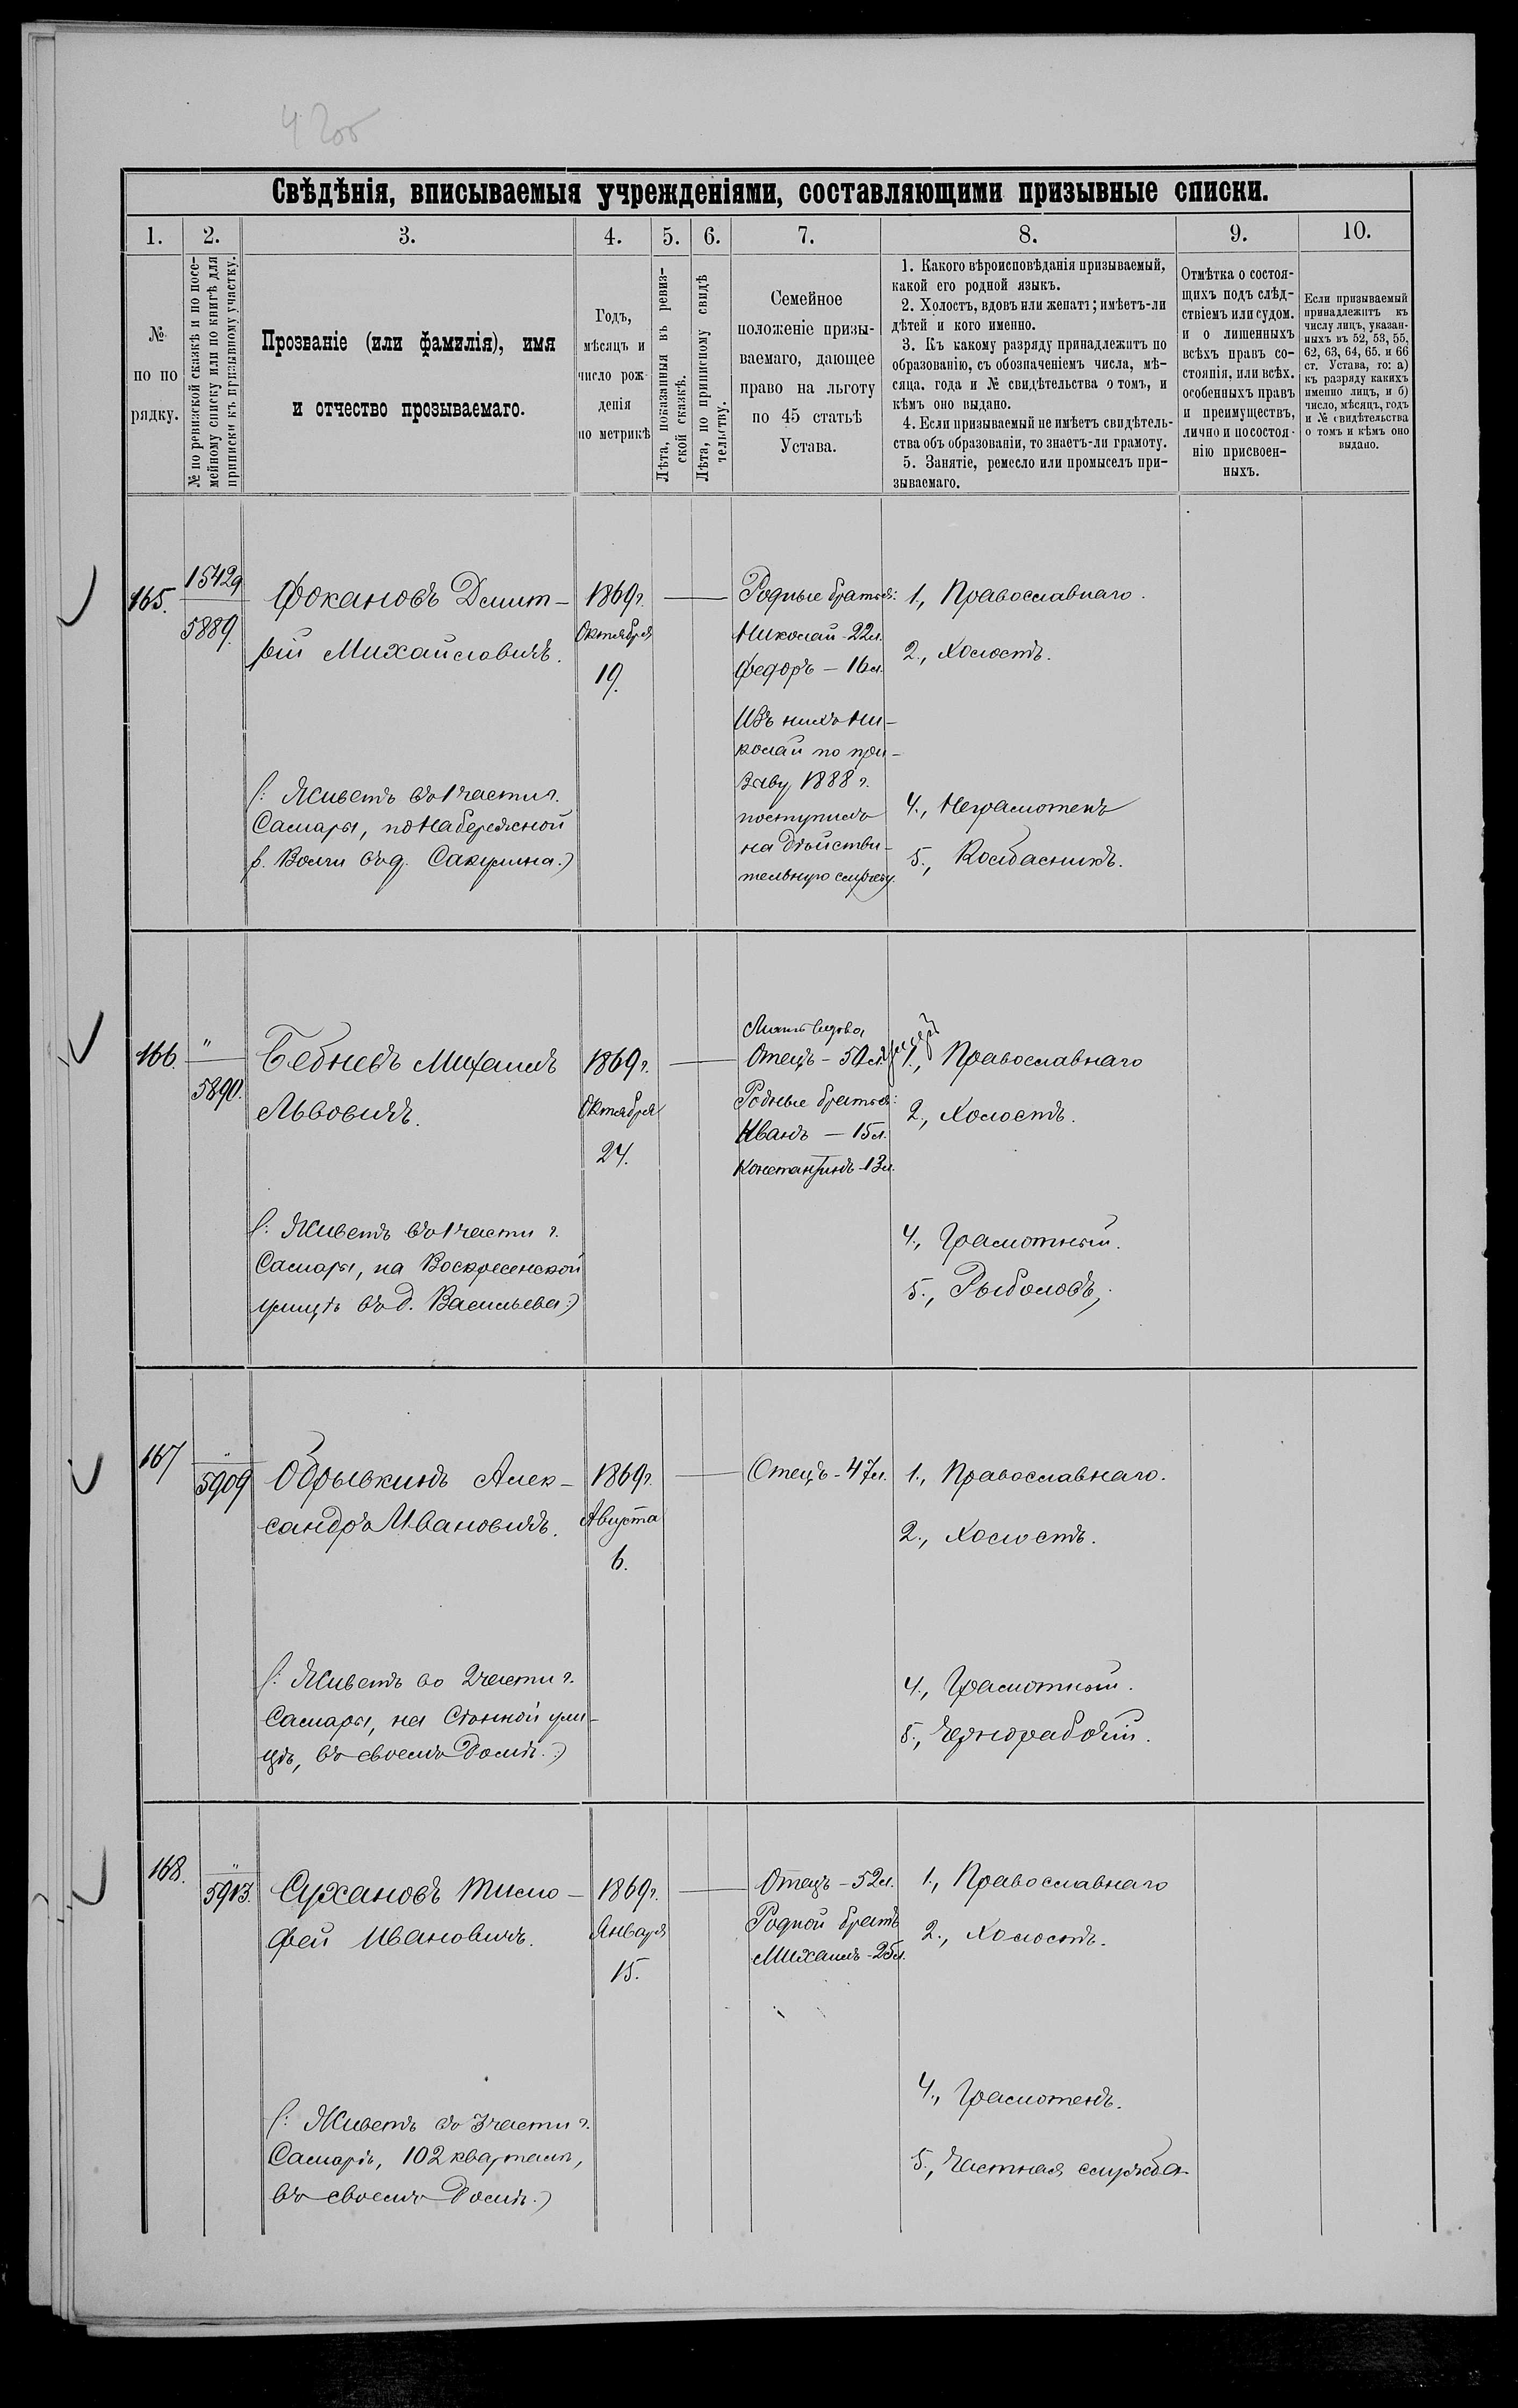 Свѣдѣнія, вписываемыя учрежденіями, составляющими призывные списки.
1. 2. 3. 4. 5. 6. 7. 8. 9. 10.
№ по порядку.
№ по ревизской сказкѣ и по посемейному списку или по книгѣ для приписки къ призывному участку.
Прозваніе (или фамилія), имя
и отчество прозываемаго.
Годъ,
мѣсяцъ и
число рож-
денія
по метрикѣ
Лѣта, показанныя въ ревиз-
ской сказкѣ.
Лѣта, по приписному свидѣ
тельству.
Семейное
положеніе призы-
ваемаго, дающее
право на льготу
по 45 статьѣ
Устава.
1. Какого вѣроисповѣданія призываемый,
какой его родной языкъ.
2. Холостъ, вдовъ или женатъ; имѣетъ-ли
дѣтей и кого именно.
3. Къ какому разряду принадлежитъ по
образованію, съ обозначеніемъ числа, мѣ-
сяца. года и № свидѣтельства о томъ, и
кѣмъ оно выдано.
4. Если призываемый не имѣетъ свидѣтель-
ства объ образованіи, то знаетъ-ли грамоту.
5. Занятіе, ремесло или промыселъ при-
зываемаго.
Отмѣтка о состоя-
щихъ подъ слѣд-
ствіемъ или судом.
и о лишенныхъ
всѣхъ правъ со-
стоянія, или всѣх.
особенныхъ правъ
и преимуществъ,
лично и по состоя-
нію присвоен-
ныхъ.
Если призываемый
принадлежитъ къ
числу лицъ, указан-
ныхъ въ 52, 53, 55,
62, 63, 64, 65. и 66
ст. Устава, то: а)
къ разряду какихъ
именно лицъ, и б)
число, мѣсяцъ, годъ
и № свидѣтельства
о томъ и кѣмъ оно
выдано.
165.
15429
5889.
Фокановъ Дмит-
рій Михайловичъ.
(: Живетъ въ 1 части г.
Самары, по Набережной
р. Волги въ д. Сакулина.)
1869 г.
Октября
19.
Родные братья:
Николай - 22 л.
Федоръ - 16 л.
Изъ нихъ Ни-
колай по при-
зыву 1888 г.
поступилъ
на дѣйстви-
тельную службу.
1., Православнаго.
2., Холостъ.
4., Неграмотенъ
5., Колбасникъ.
166.
"
5890.
Бебневъ Михаилъ
Львовичъ.
(: Живетъ въ 1 части г.
Самары, на Воскресенской
улицѣ въ д. Васильева:)
1869 г.
Октября
24.
Мать вдова,
Отецъ - 50 л.
Родные братья:
Иванъ - 15 л.
Константинъ - 13 л.
1., Православнаго
2., Холостъ.
4., Грамотный.
5., Рыболовъ,
167
"
5909
Обрывкинъ Алек-
сандръ Ивановичъ.
(: Живетъ во 2 части г.
Самары, на Сѣнной ули-
цѣ, въ своемъ домѣ.:)
1869 г.
Августа
6.
Отецъ - 47 л.
1., Православнаго.
2., Холостъ.
4., Грамотный.
5., Чернорабочій.
168.
"
5913.
Сухановъ Тимо-
фей Ивановичъ.
(: Живетъ въ 3 части г.
Самарѣ, 102 кварталѣ,
въ своемъ домѣ.)
1869 г.
Января
15.
Отецъ - 52 л.
Родной братъ
Михаилъ - 25 л.
1., Православнаго
2., Холостъ.
4., Грамотенъ.
5., Частная служба